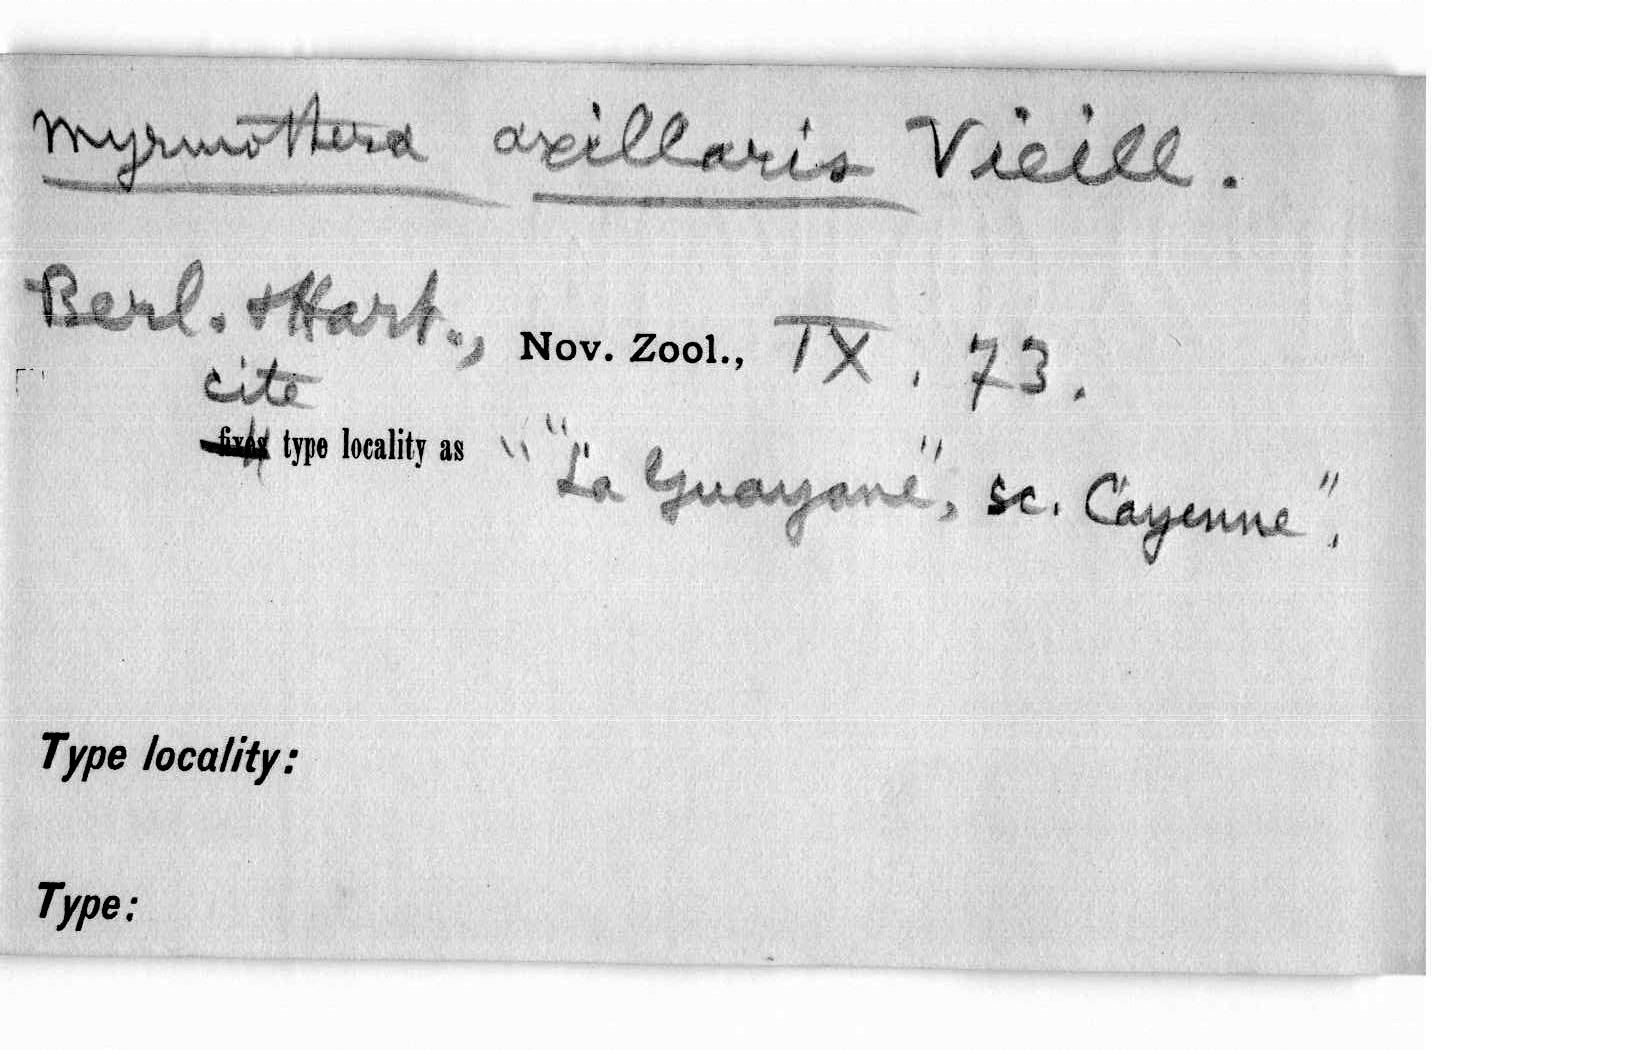 Myrmothera axillaris Vieill.
Berl. & Hart., Nov. Zool., IX, 73.
cite
fixes type locality as " "La Guayane", sc. Cayenne".
Type locality:
Type: